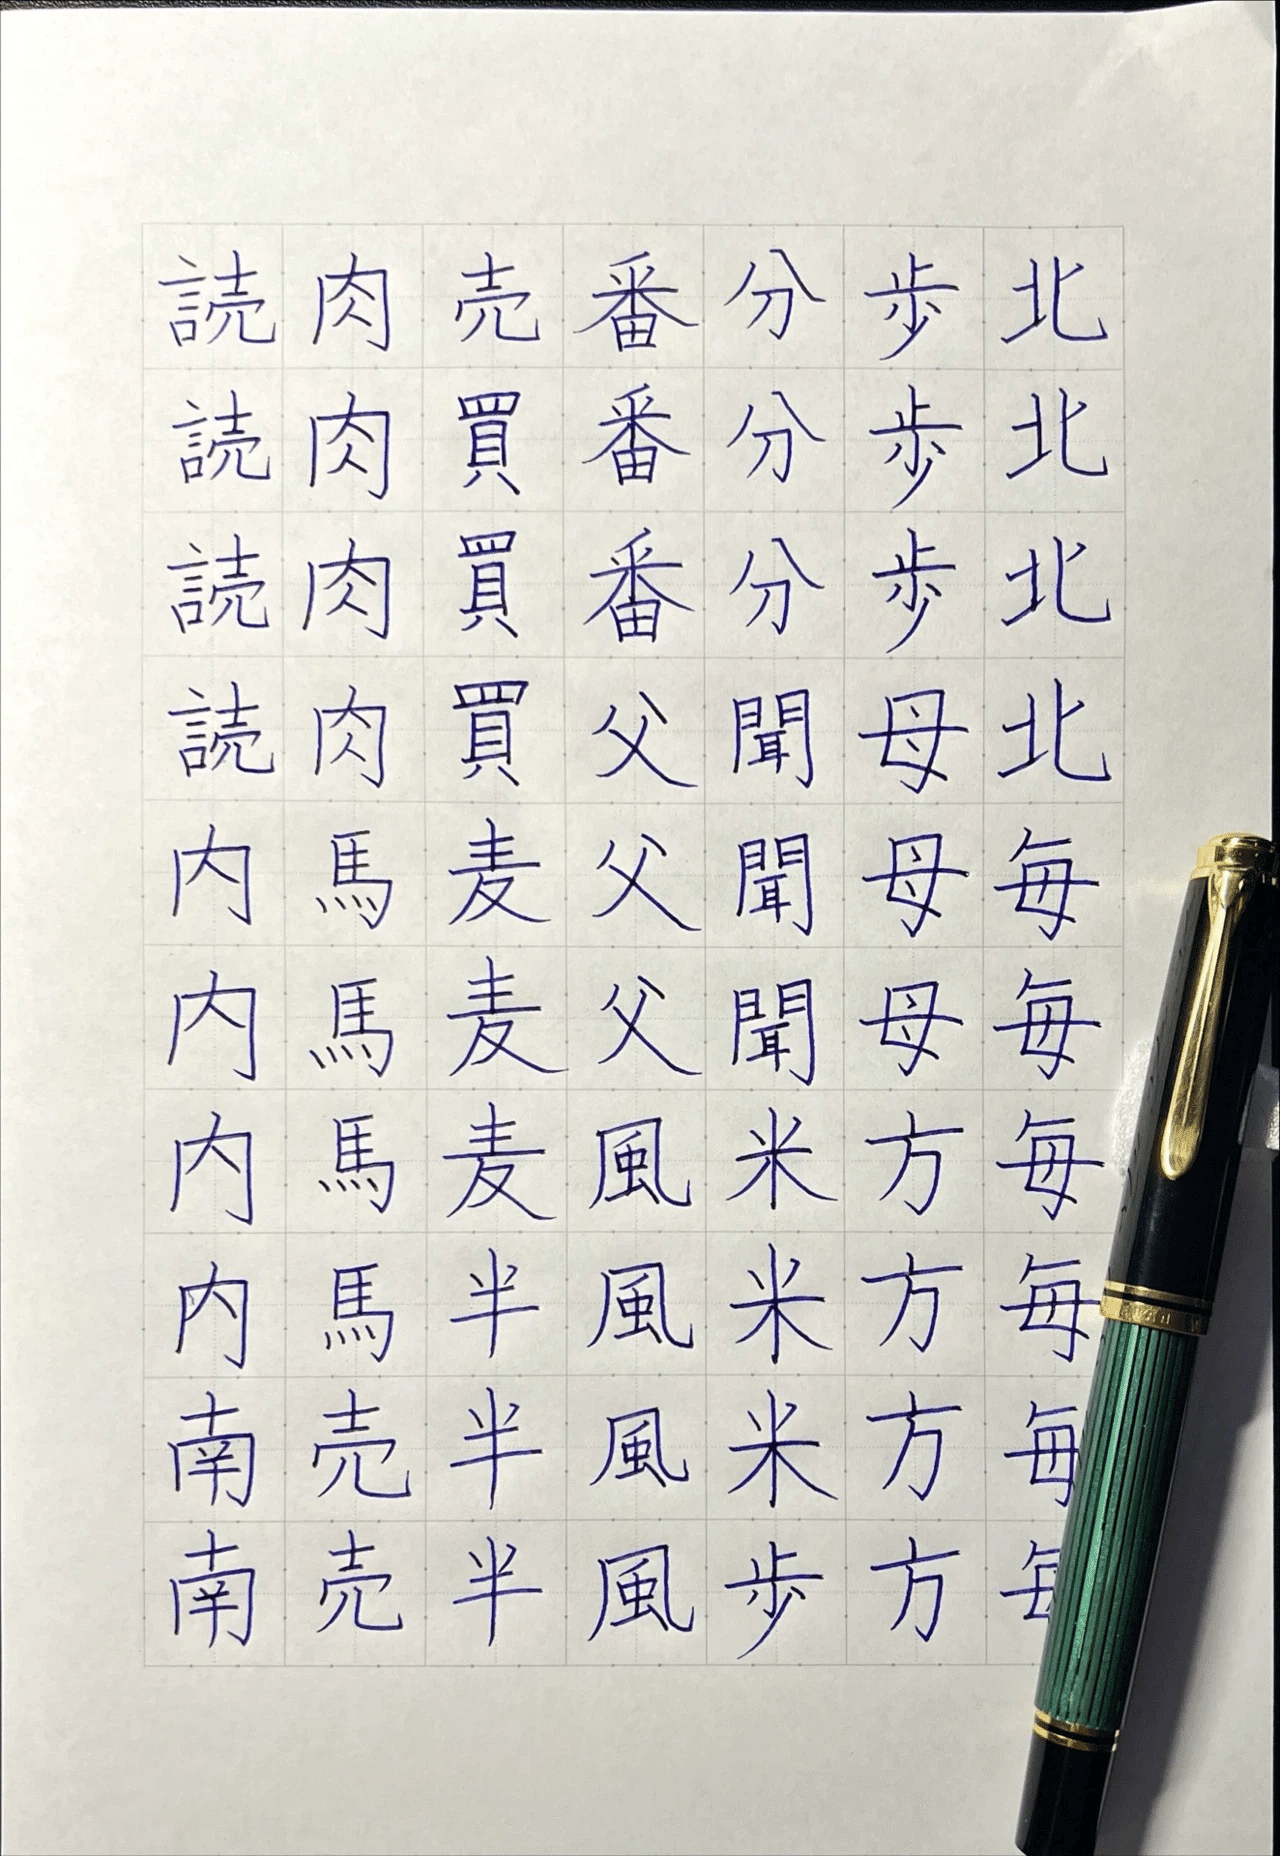 読読読読内内内内南南
肉肉肉肉馬馬馬馬売売
売買買買麦麦麦半半半
番番番父父父風風風風
分分分聞聞聞米米米歩
歩歩歩母母母方方方方
北北北北毎毎毎毎毎毎